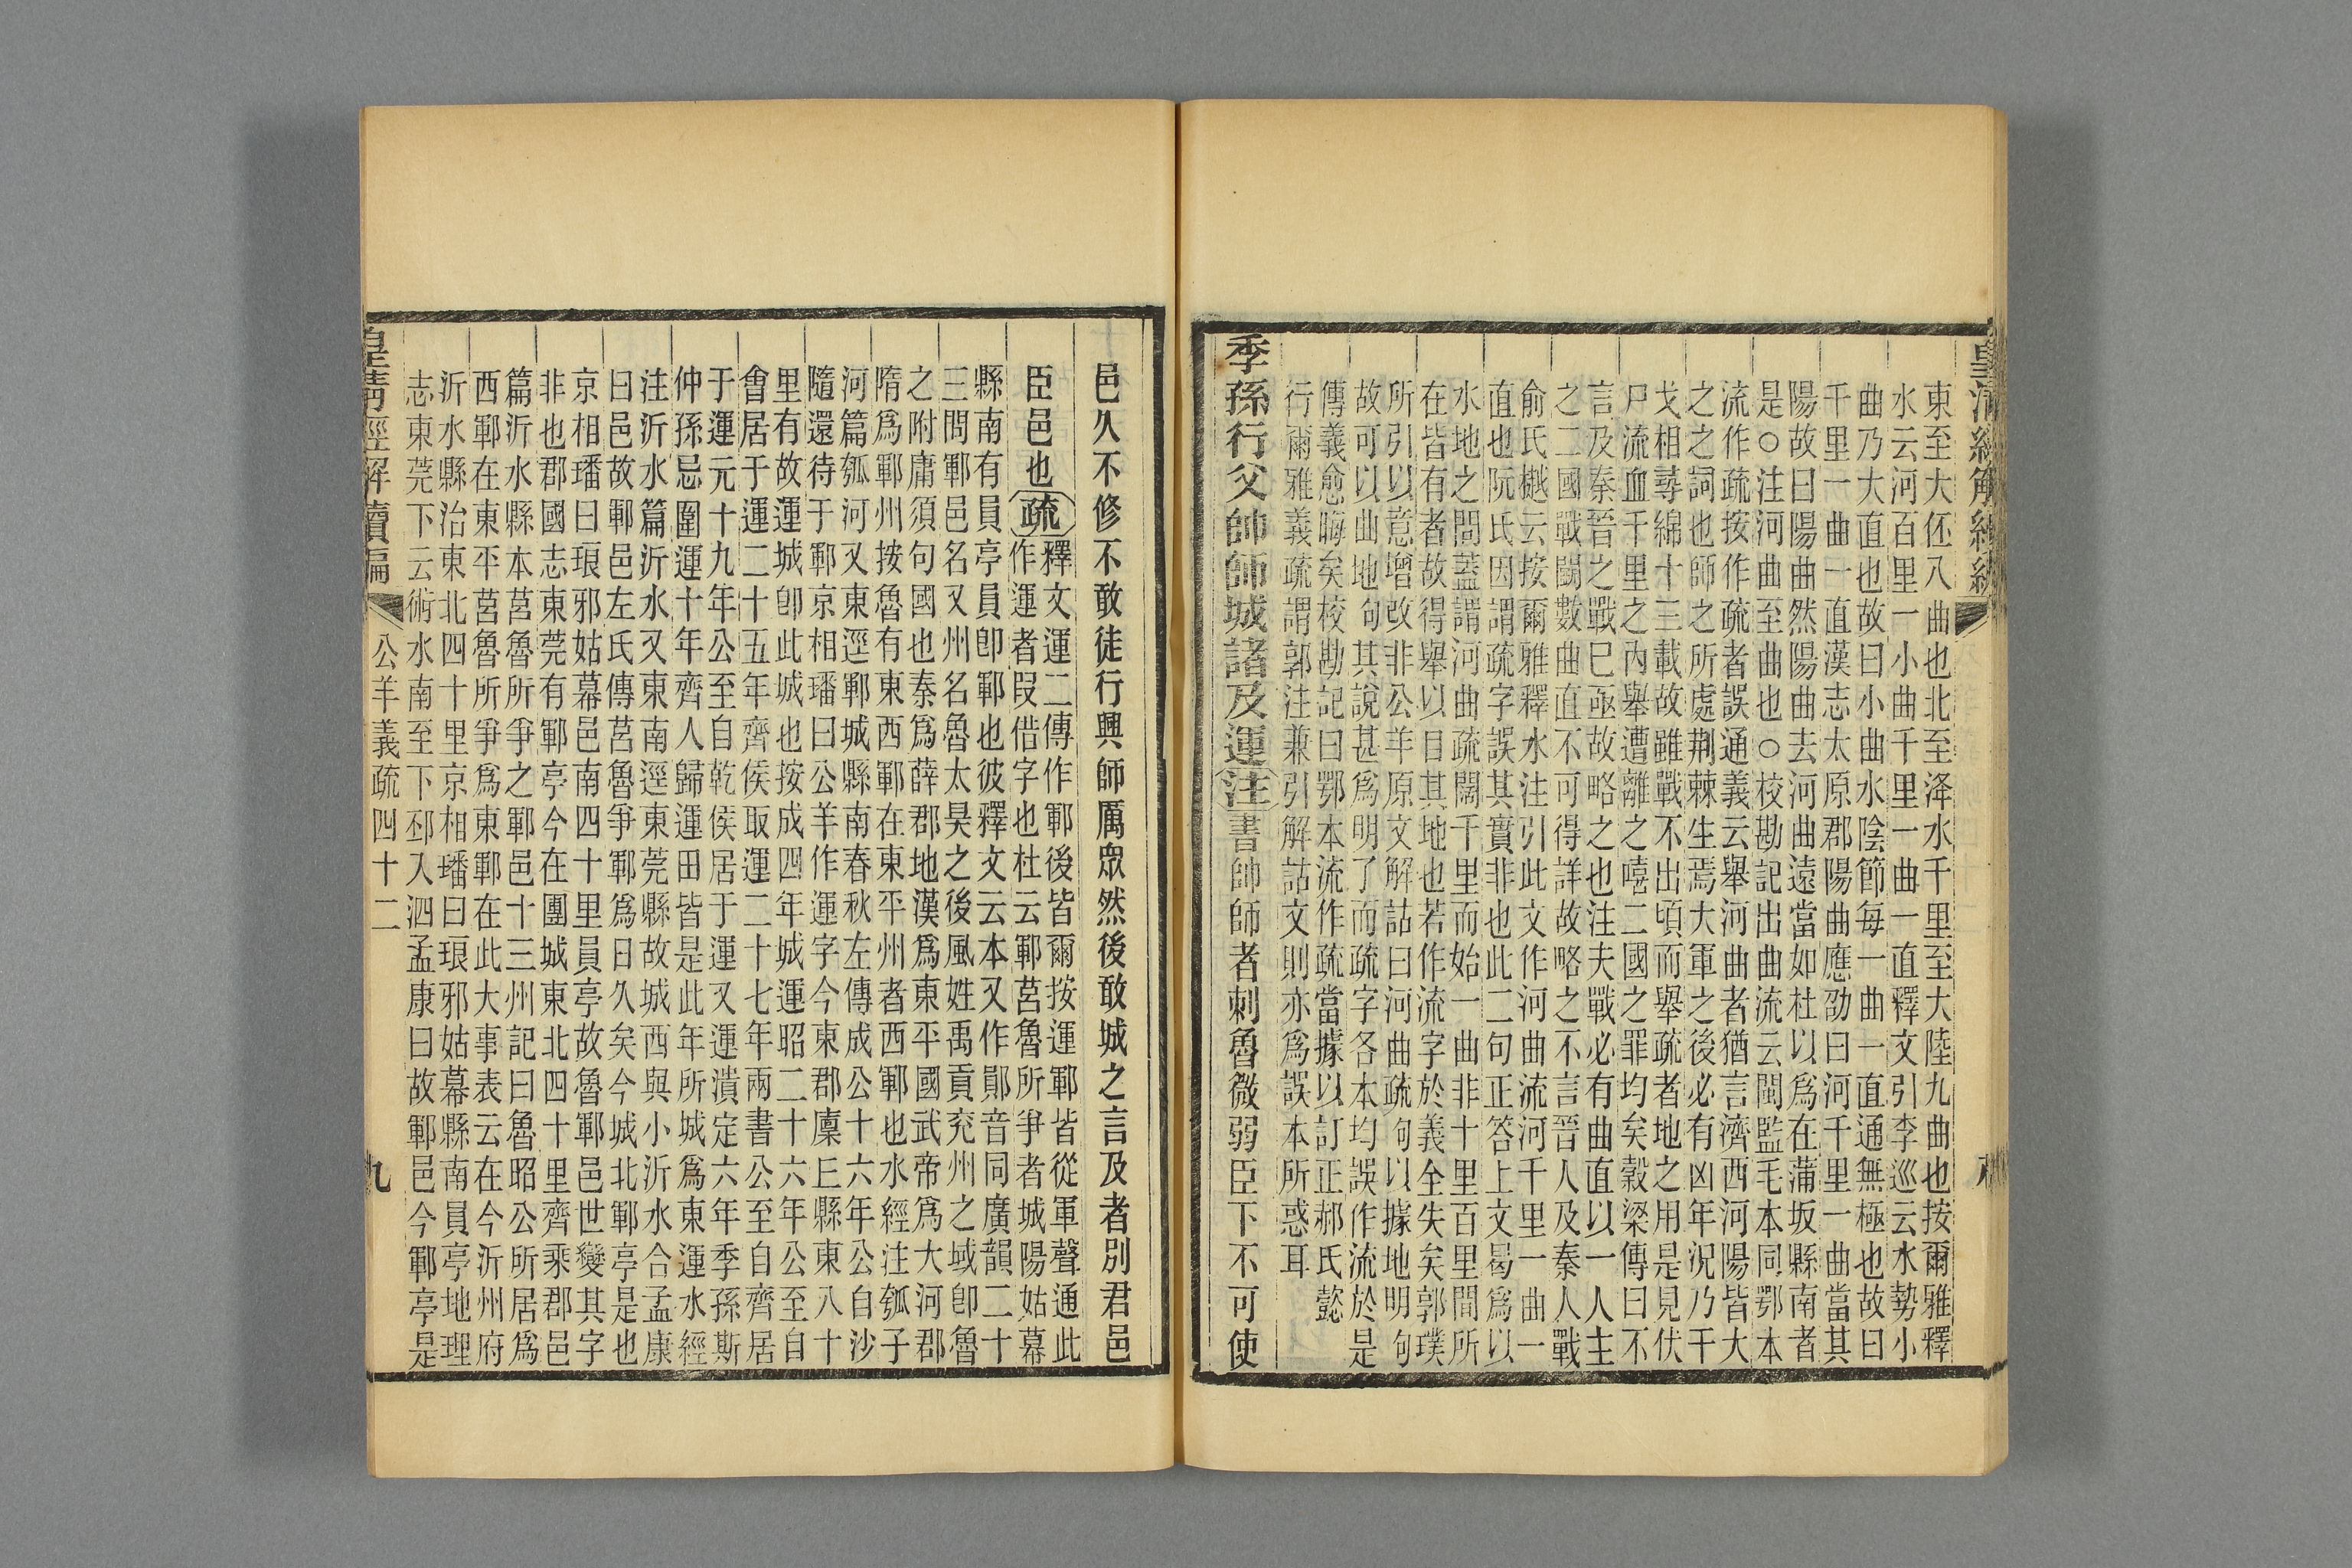 東至大伾八曲也北至洚水千里至大陸九曲也按爾雅釋
水云河百里一小曲千里一曲一直釋文引李巡云水勢小
曲乃大直也故曰小曲水陰節每一曲一直通無極也故曰
千里一曲一直漢志太原郡陽曲應劭曰河千里一曲當其
陽故曰陽曲然陽曲去河曲遠當如杜以爲在蒲坂縣南者
是○注河曲至曲也○校勘記出曲流云閩監毛本同鄂本
流作疏按作疏者誤通義云舉河曲者猶言濟西河陽皆大
之之詞也師之所處荆棘生焉大軍之後必有凶年況乃干
戈相尋綿十三載故雖戰不出頃而舉疏者地之用是見伏
尸流血千里之內舉遭離之嘻二國之罪均矣穀梁傳曰不
言及秦晉之戰巳亟故略之也注夫戰必有曲直以一人主
之二國戰鬬數曲直不可得詳故略之不言晉人及秦人戰
俞氏樾云按爾雅釋水注引此文作河曲流河千里一曲一
直也阮氏因謂疏字誤其實非也此二句正答上文曷爲以
水地之間蓋謂河曲疏闊千里而始一曲非十里百里間所
在皆有者故得舉以目其地也若作流字於義全失矣郭璞
所引以意增改非公羊原文解詁曰河曲疏句以據地明句
故可以曲地句其說甚爲明了而疏字各本均誤作流於是
傳義愈晦矣校勘記曰鄂本流作疏當據以訂正郝氏懿
行爾雅義疏謂郭注兼引解詁文則亦爲誤本所惑耳
季孫行父帥師城諸及運注書帥師者刺魯微弱臣下不可使
邑久不修不敢徒行興師厲眾然後敢城之言及者別君邑
臣邑也疏釋文運二傳作鄆後皆爾按運鄆皆從軍聲通此
作運者叚借字也杜云鄆莒魯所爭者城陽姑幕
縣南有員亭員卽鄆也彼釋文云本又作鄖音同廣韻二十
三問鄆邑名又州名魯太昊之後風姓禹貢兖州之域卽魯
之附庸須句國也秦爲薛郡地漢爲東平國武帝爲大河郡
隋爲鄆州按魯有東西鄆在東平州者西鄆也水經注瓠子
河篇瓠河又東逕鄆城縣南春秋左傳成公十六年公自沙
隨還待于鄆京相璠曰公羊作運字今東郡廩丘縣東八十
里有故運城卽此城也按成四年城運昭二十六年公至自
會居于運二十五年齊侯取運二十七年兩書公至自齊居
于運元十九年公至自乾侯居于運又運潰定六年季孫斯
仲孫忌圍運十年齊人歸運田皆是此年所城爲東運水經
注沂水篇沂水又東南逕東莞縣故城西與小沂水合孟康
曰邑故鄆邑左氏傳莒魯爭鄆爲日久矣今城北鄆亭是也
京相璠曰琅邪姑幕邑南四十里員亭故魯鄆邑世變其字
非也郡國志東莞有鄆亭今在團城東北四十里齊乘郡邑
篇沂水縣本莒魯所爭之鄆邑十三州記曰魯昭公所居爲
西鄆在東平莒魯所爭爲東鄆在此大事表云在今沂州府
沂水縣治東北四十里京相璠曰琅邪姑幕縣南員亭地理
志東莞下云術水南至下邳入泗孟康曰故鄆邑今鄆亭是
皇清經解續編
公羊義疏四十二
九